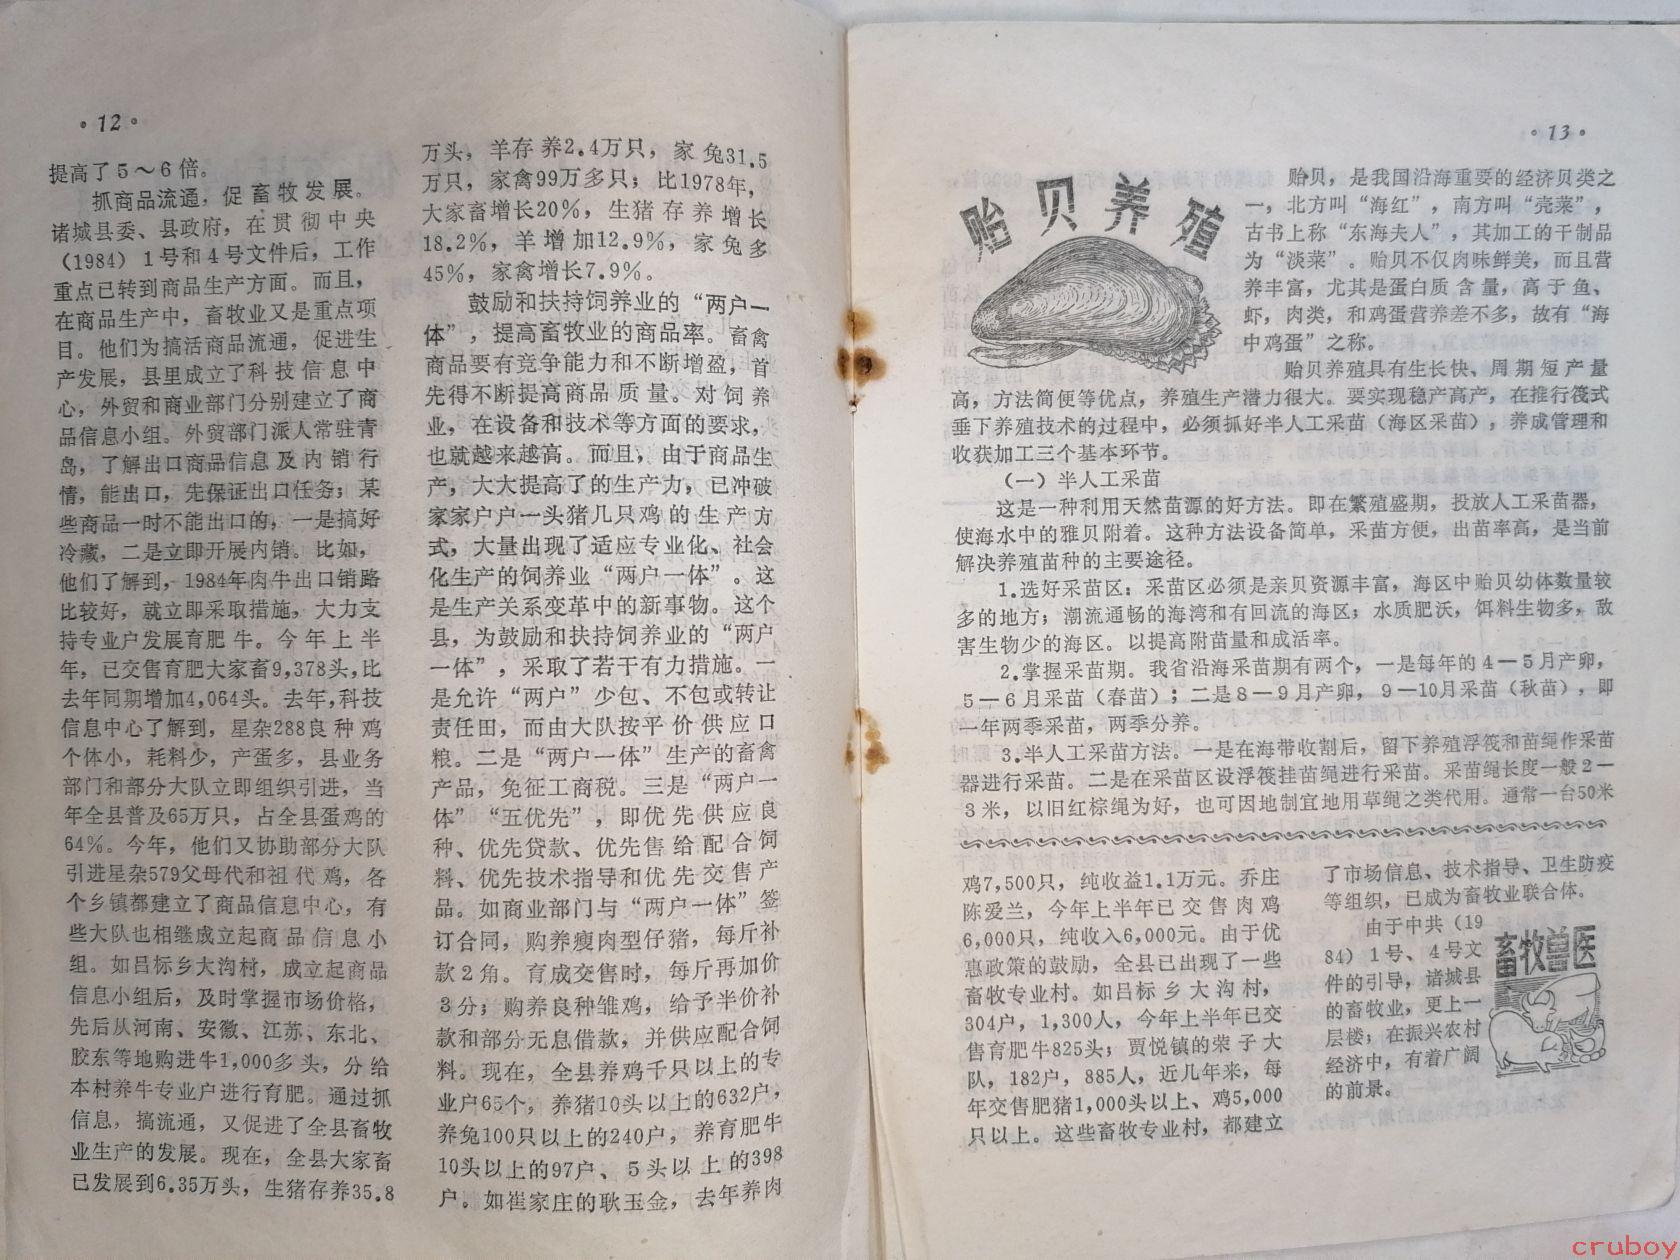 ·12·
提高了5～6倍。
抓商品流通，促畜牧发展。
诸城县委、县政府，在贯彻中央
（1984）1号和4号文件后，工作
重点已转到商品生产方面。而且，
在商品生产中，畜牧业又是重点项
目。他们为搞活商品流通，促进生
产发展，县里成立了科技信息中
心，外贸和商业部门分别建立了商
品信息小组。外贸部门派人常驻青
岛，了解出口商品信息及内销行
情，能出口，先保证出口任务；某
些商品一时不能出口的，一是搞好
冷藏，二是立即开展内销。比如，
他们了解到，1984年肉牛出口销路
比较好，就立即采取措施，大力支
持专业户发展育肥牛。今年上半
年，已交售育肥大家畜9,378头，比
去年同期增加4,064头。去年，科技
信息中心了解到，星杂288良种鸡
个体小，耗料少，产蛋多，县业务
部门和部分大队立即组织引进，当
年全县普及65万只，占全县蛋鸡的
64%。今年，他们又协助部分大队
引进星杂579父母代和祖代鸡，各
个乡镇都建立了商品信息中心，有
些大队也相继成立起商品信息小
组。如吕标乡大沟村，成立起商品
信息小组后，及时掌握市场价格，
先后从河南、安徽、江苏、东北、
胶东等地购进牛1,000多头，分给
本村养牛专业户进行育肥。通过抓
信息，搞流通，又促进了全县畜牧
业生产的发展。现在，全县大家畜
已发展到6.35万头，生猪存养35.8
万头，羊存养2.4万只，家兔31.5
万只，家禽99万多只；比1978年，
大家畜增长20%，生猪存养增长
18.2%，羊增加12.9%，家兔多
45%，家禽增长7.9%。
鼓励和扶持饲养业的“两户一
体”，提高畜牧业的商品率。畜禽
商品要有竞争能力和不断增盈，首
先得不断提高商品质量。对饲养
业，在设备和技术等方面的要求，
也就越来越高。而且，由于商品生
产，大大提高了的生产力，已冲破
家家户户一头猪几只鸡的生产方
式，大量出现了适应专业化、社会
化生产的饲养业“两户一体”。这
是生产关系变革中的新事物。这个
县，为鼓励和扶持饲养业的“两户
一体”，采取了若干有力措施。一
是允许“两户”少包、不包或转让
责任田，而由大队按平价供应口
粮。二是“两户一体”生产的畜禽
产品，免征工商税。三是“两户一
体”“五优先”，即优先供应良
种、优先贷款、优先售给配合饲
料、优先技术指导和优先交售产
品。如商业部门与“两户一体”签
订合同，购养瘦肉型仔猪，每斤补
款2角。育成交售时，每斤再加价
3分；购养良种雏鸡，给予半价补
款和部分无息借款，并供应配合饲
料。现在，全县养鸡千只以上的专
业户65个，养猪10头以上的632户，
养兔100只以上的240户，养育肥牛
10头以上的97户、5头以上的398
户。如崔家庄的耿玉金，去年养肉
·13·
贻贝养殖
贻贝，是我国沿海重要的经济贝类之
一，北方叫“海红”，南方叫“壳菜”，
古书上称“东海夫人”，其加工的干制品
为“淡菜”。贻贝不仅肉味鲜美，而且营
养丰富，尤其是蛋白质含量，高于鱼、
虾，肉类，和鸡蛋营养差不多，故有“海
中鸡蛋”之称。
贻贝养殖具有生长快、周期短产量
高，方法简便等优点，养殖生产潜力很大。要实现稳产高产，在推行筏式
垂下养殖技术的过程中，必须抓好半人工采苗（海区采苗），养成管理和
收获加工三个基本环节。
（一）半人工采苗
这是一种利用天然苗源的好方法。即在繁殖盛期，投放人工采苗器，
使海水中的雅贝附着。这种方法设备简单，采苗方便，出苗率高，是当前
解决养殖苗种的主要途径。
1.选好采苗区：采苗区必须是亲贝资源丰富，海区中贻贝幼体数量较
多的地方；潮流通畅的海湾和有回流的海区；水质肥沃，饵料生物多，敌
害生物少的海区。以提高附苗量和成活率。
2.掌握采苗期。我省沿海采苗期有两个，一是每年的4—5月产卵，
5—6月采苗（春苗）；二是8—9月产卵，9—10月采苗（秋苗），即
一年两季采苗，两季分养。
3.半人工采苗方法。一是在海带收割后，留下养殖浮筏和苗绳作采苗
器进行采苗。二是在采苗区设浮筏挂苗绳进行采苗。采苗绳长度一般2—
3米，以旧红棕绳为好，也可因地制宜地用草绳之类代用。通常一台50米
鸡7,500只，纯收益1.1万元。乔庄
陈爱兰，今年上半年已交售肉鸡
6,000只，纯收入6,000元。由于优
惠政策的鼓励，全县已出现了一些
畜牧专业村。如吕标乡大沟村，
304户，1,300人，今年上半年已交
售育肥牛825头；贾悦镇的荣子大
队，182户，885人，近几年来，每
年交售肥猪1,000头以上、鸡5,000
只以上。这些畜牧专业村，都建立
了市场信息、技术指导、卫生防疫
等组织，已成为畜牧业联合体。
由于中共（19
84）1号、4号文
件的引导，诸城县
的畜牧业，更上一
层楼；在振兴农村
经济中，有着广阔
的前景。
畜牧兽医
cruboy